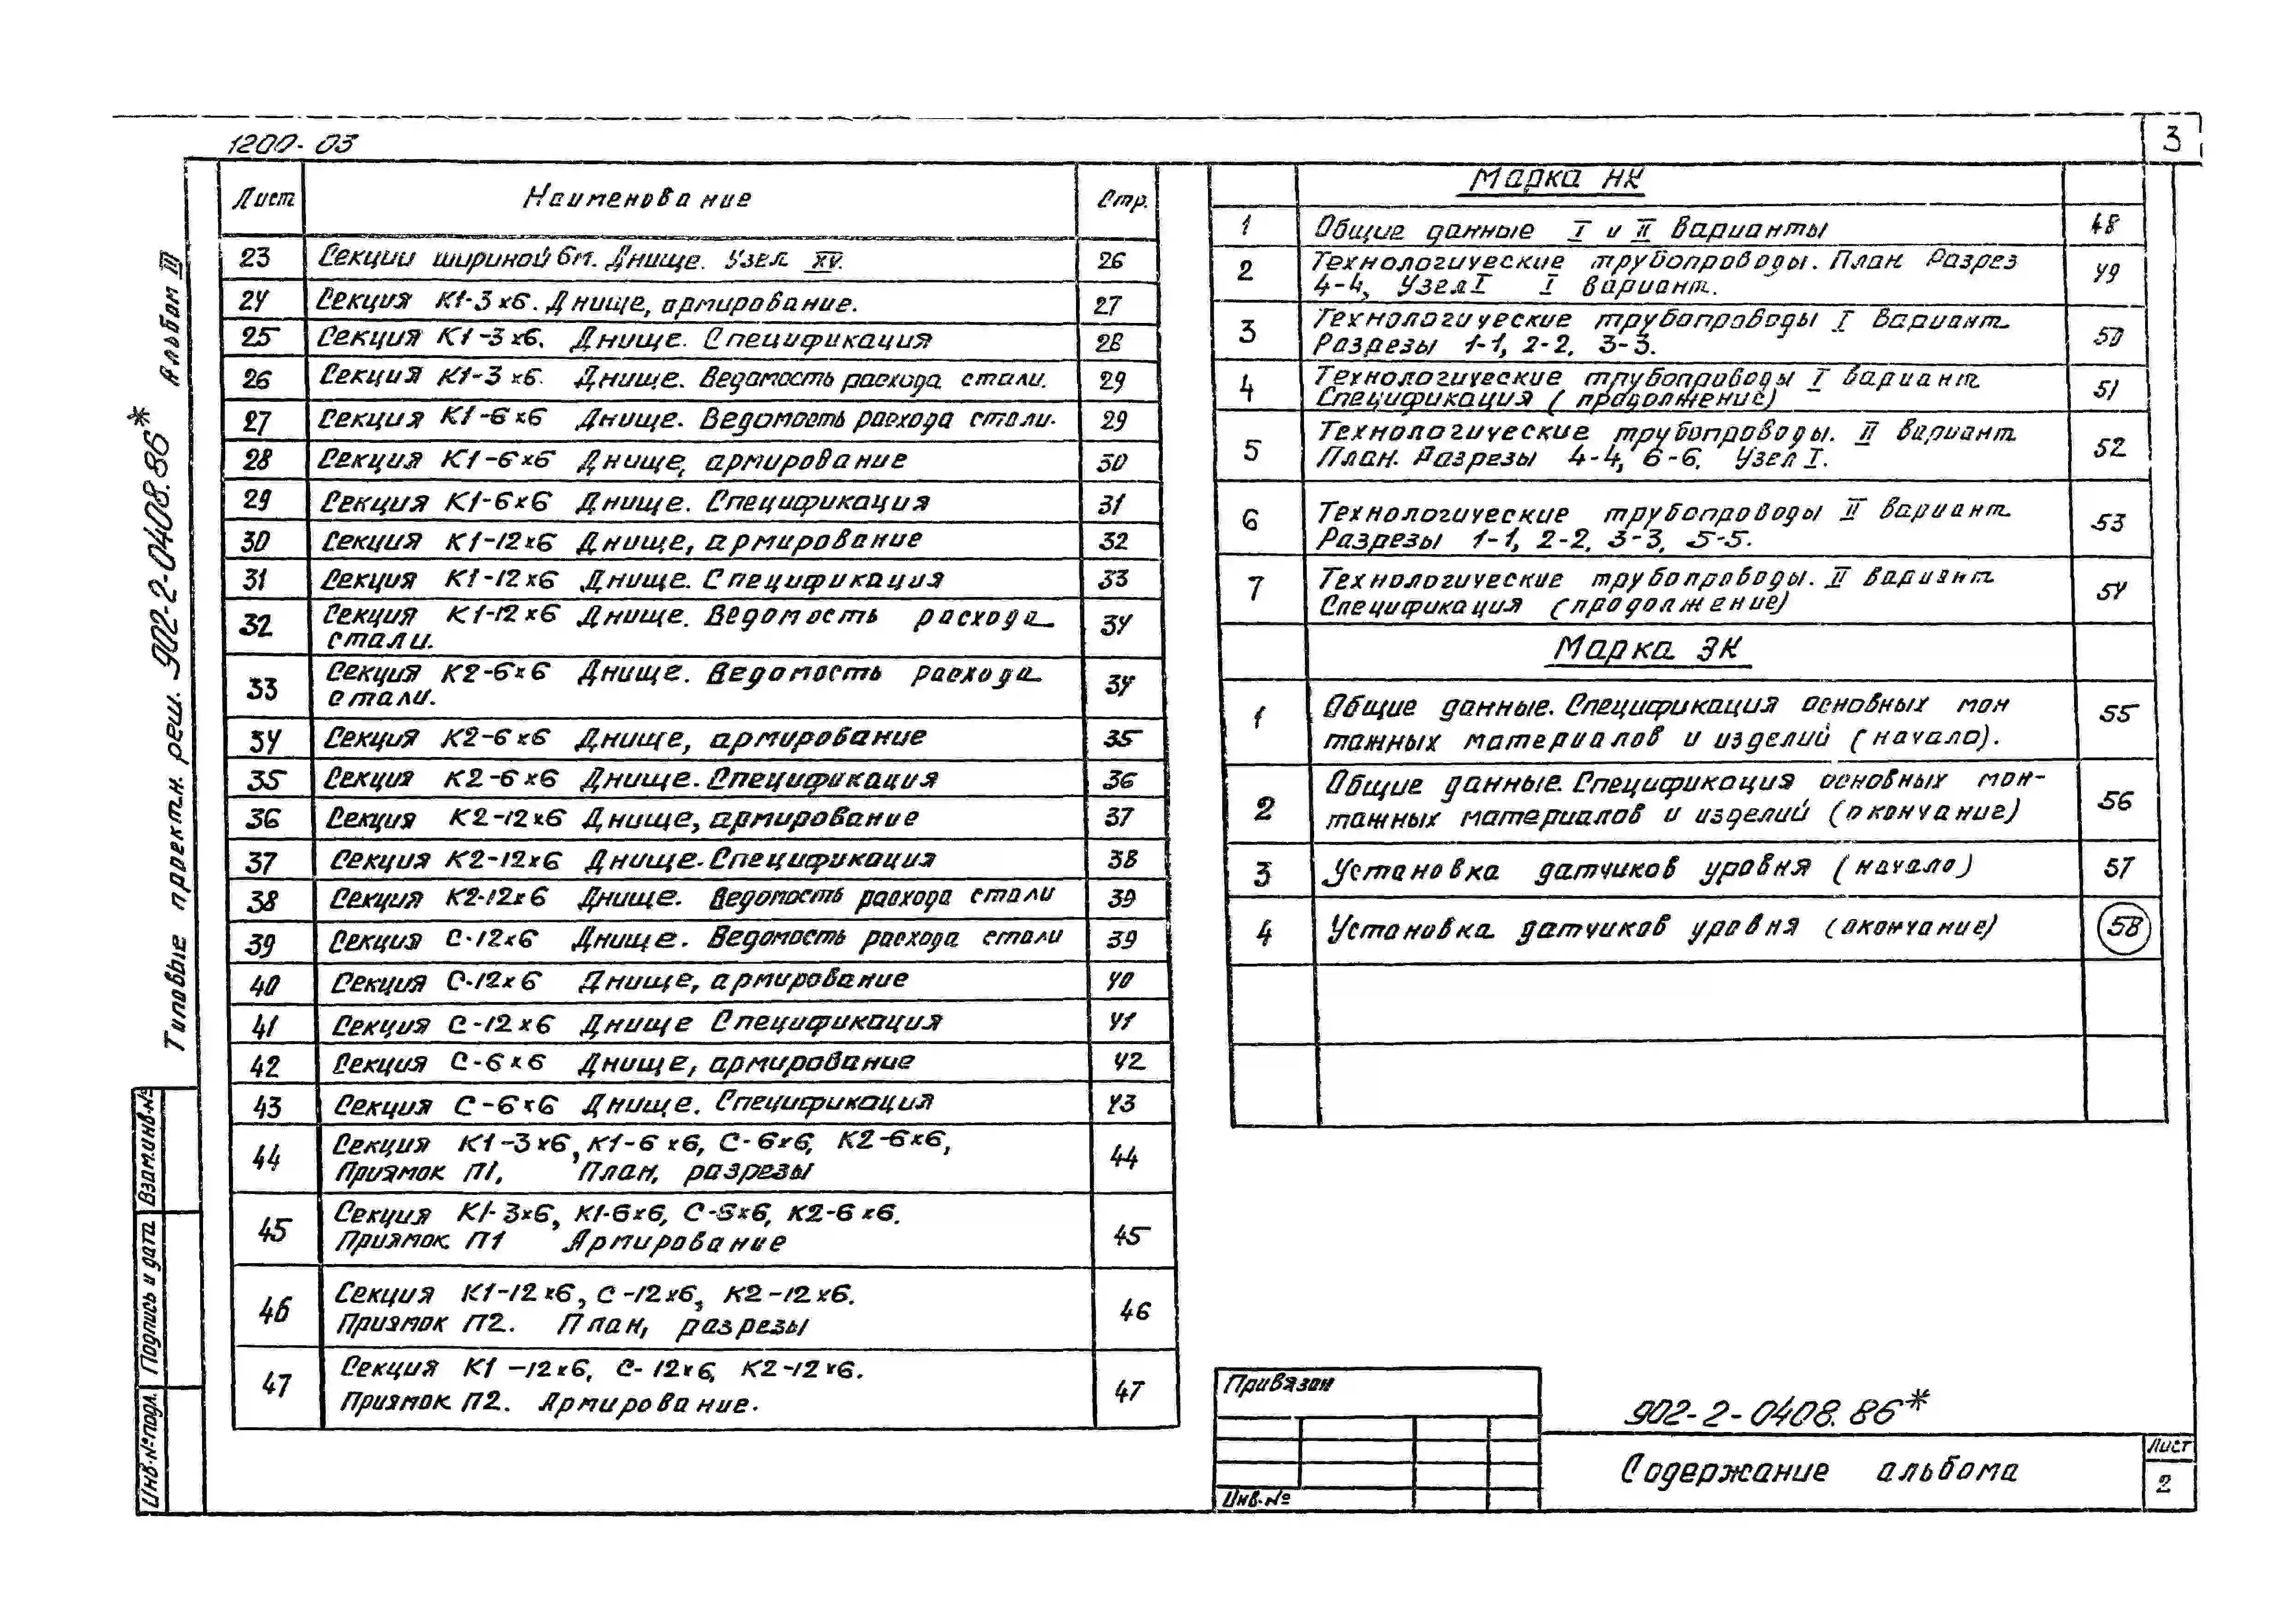 1200-03
3
Альбом III
Типовые проектн. реш. 902-2-0408.86*
Взам.инв.№
Подпись и дата
Инв.№ подл.
Лист Наименование Стр.
23 Секции шириной 6м. Днище. Узел XV. 26
24 Секция К1-3х6. Днище, армирование. 27
25 Секция К1-3х6. Днище. Спецификация 28
26 Секция К1-3х6. Днище. Ведомость расхода стали. 29
27 Секция К1-6х6 Днище. Ведомость расхода стали. 29
28 Секция К1-6х6 Днище, армирование 30
29 Секция К1-6х6 Днище. Спецификация 31
30 Секция К1-12х6 Днище, армирование 32
31 Секция К1-12х6 Днище. Спецификация 33
32 Секция К1-12х6 Днище. Ведомость расхода 34
стали.
33 Секция К2-6х6 Днище. Ведомость расхода 34
стали.
34 Секция К2-6х6 Днище, армирование 35
35 Секция К2-6х6 Днище. Спецификация 36
36 Секция К2-12х6 Днище, армирование 37
37 Секция К2-12х6 Днище. Спецификация 38
38 Секция К2-12х6 Днище. Ведомость расхода стали 39
39 Секция С-12х6 Днище. Ведомость расхода стали 39
40 Секция С-12х6 Днище, армирование 40
41 Секция С-12х6 Днище Спецификация 41
42 Секция С-6х6 Днище, армирование 42
43 Секция С-6х6 Днище. Спецификация 43
44 Секция К1-3х6, К1-6х6, С-6х6, К2-6х6, 44
Приямок П1, План, разрезы
45 Секция К1-3х6, К1-6х6, С-6х6, К2-6х6. 45
Приямок П1 Армирование
46 Секция К1-12х6, С-12х6, К2-12х6. 46
Приямок П2. План, разрезы
47 Секция К1-12х6, С-12х6, К2-12х6. 47
Приямок П2. Армирование.
Марка НК
1 Общие данные I и II варианты 48
2 Технологические трубопроводы. План. Разрез 49
4-4, Узел I I вариант.
3 Технологические трубопроводы I вариант. 50
Разрезы 1-1, 2-2, 3-3.
4 Технологические трубопроводы I вариант. 51
Спецификация (продолжение)
5 Технологические трубопроводы. II вариант. 52
План. Разрезы 4-4, 6-6, Узел I.
6 Технологические трубопроводы II вариант. 53
Разрезы 1-1, 2-2, 3-3, 5-5.
7 Технологические трубопроводы. II вариант. 54
Спецификация (продолжение)
Марка ЭК
1 Общие данные. Спецификация основных мон 55
тажных материалов и изделий (начало).
2 Общие данные. Спецификация основных мон- 56
тажных материалов и изделий (окончание)
3 Установка датчиков уровня (начало) 57
4 Установка датчиков уровня (окончание) 58
Привязан
Инв.№
902-2-0408.86*
Содержание альбома
Лист
2